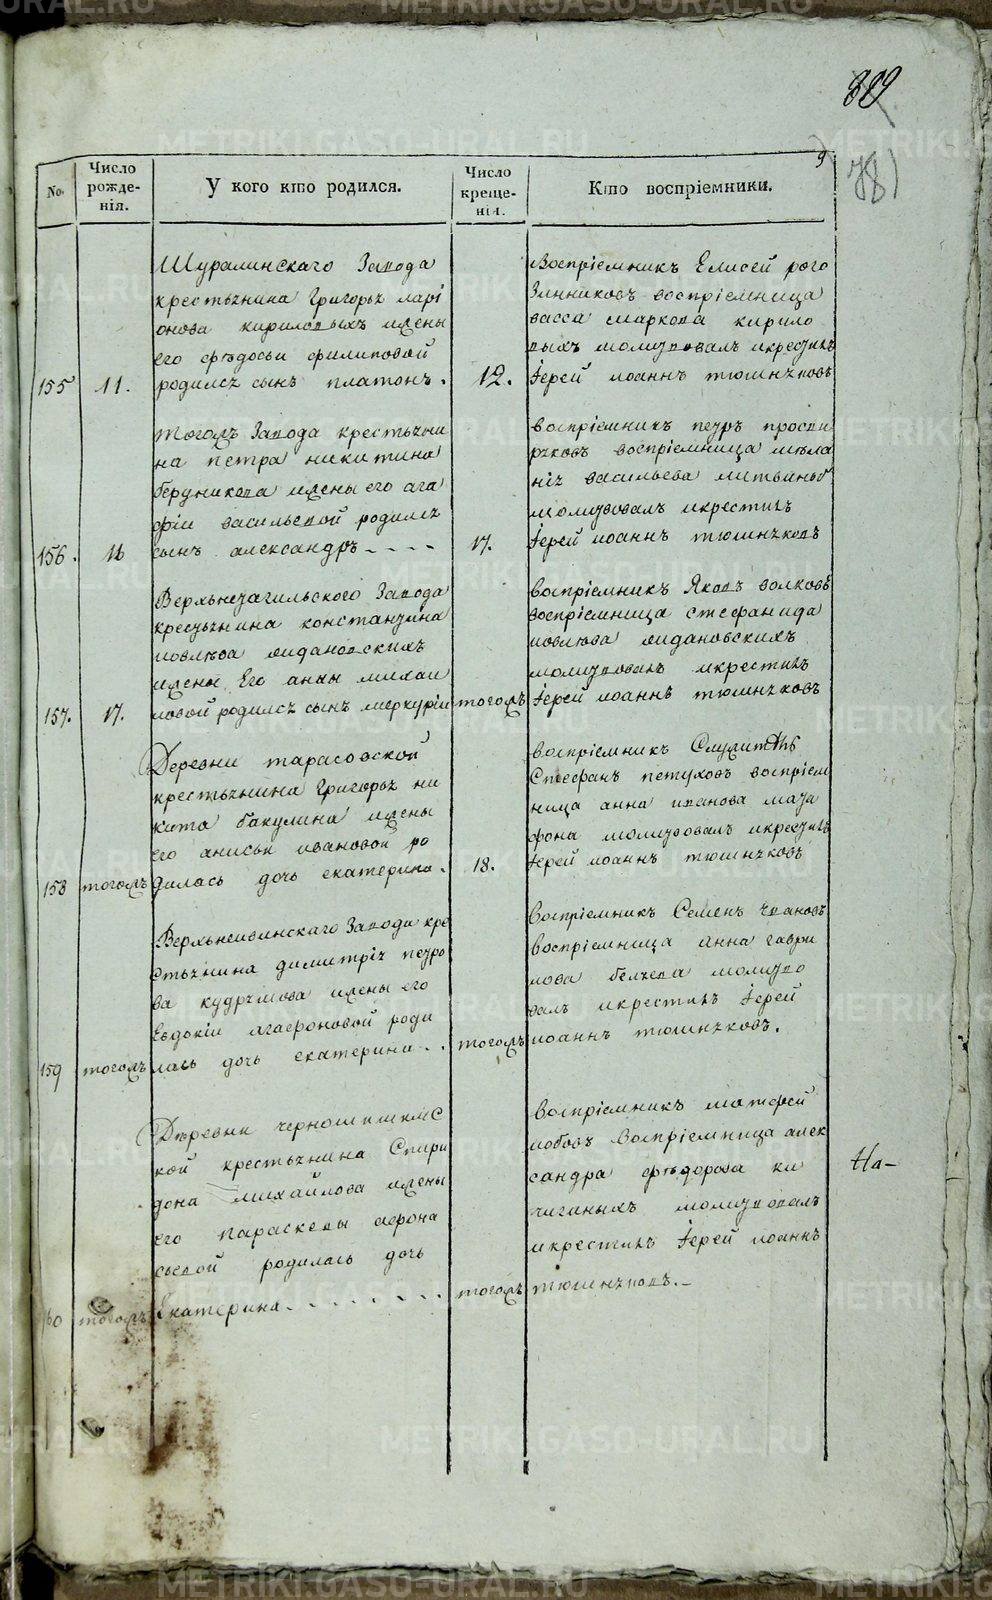 819
78)
9
No.
Число
рожде-
нія.
У кого кто родился.
Число
креще-
нія.
Кто воспріемники.
Шуралинскаго Завода
крестьянина Григорья ларі
онова кириловыхъ ижены
его фѣдосьи филиповой
155 11. родился сынъ платонъ. 12.
Воспріемникъ Елисей рого
Зинниковъ воспріемница
васса маркова кирило
выхъ молитвовалъ икрестилъ
Іерей иоаннъ тюшняковъ
тогожъ Завода крестьяни
на петра никитина
бердникова ижены его ага
фіи васильевой родился
156. 16 сынъ александръ - - - - 17.
воспріемникъ петръ просви
ряковъ воспріемница мѣла
нія васильева
молитвовалъ икрестилъ
Іерей иоаннъ тюшняковъ
Верхьнетагильского Завода
крестьянина констаньтина
иовлева
ижены Его анны михаи
157. 17. ловой родился сынъ меркурій тогожъ
воспріемникъ Яковъ волковъ
воспріемница стефанида
иовлева
молитвовалъ икрестилъ
Іерей иоаннъ тюшняковъ
Деревни тарасовской
крестьянина Григорья ни
кита бакулина ижены
его анисьи ивановой ро
158 тогожъ дилась дочь екатерина. 18.
воспріемникъ Служитель
Стефанъ петуховъ воспріем
ница анна иванова мага
фона молитвовалъ икрестилъ
Іерей иоаннъ тюшняковъ
Верхьнеивинскаго Завода кре
стьянина димитрія петро
ва кудряшова ижены его
Евдокіи агафоновой роди
159 тогожъ лась дочь екатерина - . тогожъ
Воспріемникъ Семенъ
воспріемница анна гаври
лова белчева молитво
валъ икрестилъ Іерей
иоаннъ тюшняковъ.
Деревни черношишимс
кой крестьянина Спири
дона михайлова ижены
его параскевы афона
сьевой родилась дочь
160 тогожъ Екатерина - - - - - - - - тогожъ
воспріемникъ матфей
лобовъ воспріемница алек
сандра фѣдорова ки
чигиныхъ молитвовалъ
икрестилъ Іерей иоаннъ
тюшняковъ. -
На-
METRIKI.GASO-URAL.RU